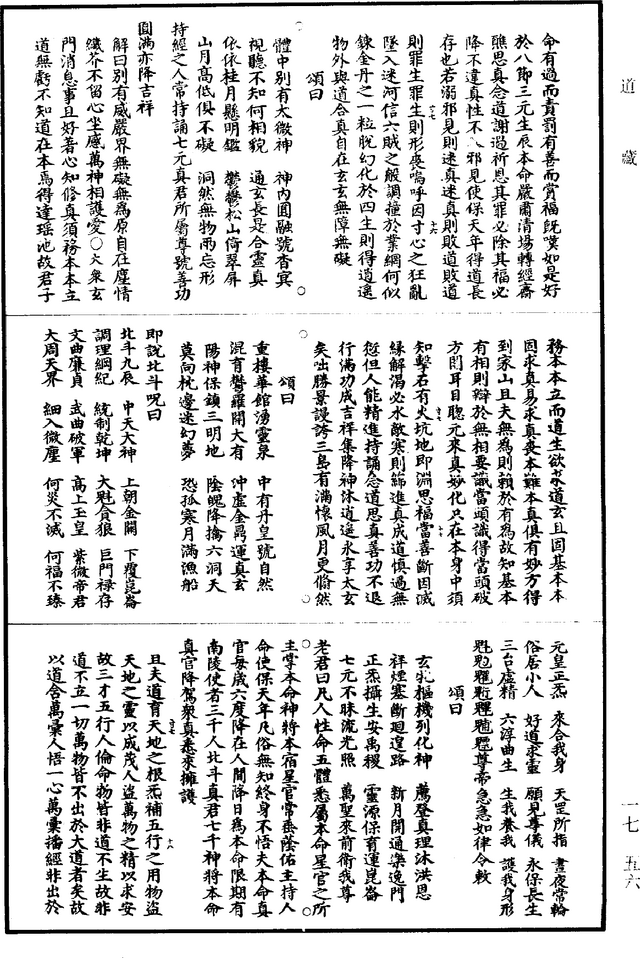 道藏
命有過而責罰有善而賞福既嘆如是好
於八節三元生辰本命嚴肅清場轉經齋
醮思真念道謝過祈恩其罪必除其福必
降不違真性不入邪見使保天年得道長
存也若溺邪見則迷真迷真則敗道敗道
則罪生罪生則形喪嗚呼因寸心之狂亂
墜入迷河信六賊之般調撞於業網何似
鍊金丹之一粒脫幻化於四生則得逍遙
物外與道合真自在玄玄無障無礙
頌曰
體中別有太微神　神內圓融號杳冥
視聽不知何相貌　通玄長是合靈真
依依桂月懸明鑑　鬱鬱松山倚翠屏
山月高低俱不礙　洞然無物兩忘形
持經之人常持誦七元真君所屬尊號善功
圓滿亦降吉祥
解曰別有威嚴界無礙無為原自在塵情
纖芥不留心坐感萬神相護愛○大衆玄
門消息事且好著心知修真須務本本立
道無虧不知道在本焉得達瑤池故君子
務本本立而道生欲求道玄且固基本本
固求真易求真喪本難本真俱有妙方得
到家山且夫無為則賴於有為故知基本
有相則辯於無相要識當頭識得當頭破
方問耳目聰元來真妙化只在本身中須
知擊石有火坑地即淵思福當善斷因滅
緣解渴必水敵寒則篩進真成道慎過無
愆但人能精進持誦念道思真善功不退
行滿功成吉祥集降神沐逍遙永享太玄
矣咄勝景謾誇三島有滿懷風月更翛然
頌曰
重樓華館湧靈泉　中有丹皇號自然
混育鬱羅開大有　沖虛金鬲運真玄
陽神保鎮三明地　陰魄降擒六洞天
莫向枕邊迷幻夢　恐孤寒月滿漁船
即說北斗呪曰
北斗九辰　中天大神　上朝金闕　下覆崑崙
調理綱紀　統制乾坤　大魁貪狼　巨門祿存
文曲廉貞　武曲破軍　高上玉皇　紫微帝君
大周天界　細入微塵　何災不滅　何福不臻
元皇正炁　來合我身　天罡所指　晝夜常輪
俗居小人　好道求靈　願見尊儀　永保長生
三台虛精　六淳曲生　生我養我　護我身形
魁𩲃䰢魓䰠魒尊帝急急如律令敕
頌曰
玄牝樞機列化神　薦登真理沐洪恩
祥煙塞斷迴遑路　新月開通樂逸門
正炁攝生安禹稷　靈源保育運崑崙
七元不昧流光照　萬聖來前衛我尊
老君曰凡人性命五體悉屬本命星官之所
主掌本命神將本宿星官常垂蔭佑主持人
命使保天年凡俗無知終身不悟夫本命真
官每歲六度降在人間降日為本命限期有
南陵使者三千人北斗真君七千神將本命
真官降駕衆真悉來擁護
且夫道育天地之根炁補五行之用物盜
天地之靈以成茂人盜萬物之精以求安
故三才五行人倫命物皆非道不生故非
道不立一切萬物皆不出於大道者矣故
以道含萬彙人悟一心萬彙播經非出於
一七　五六